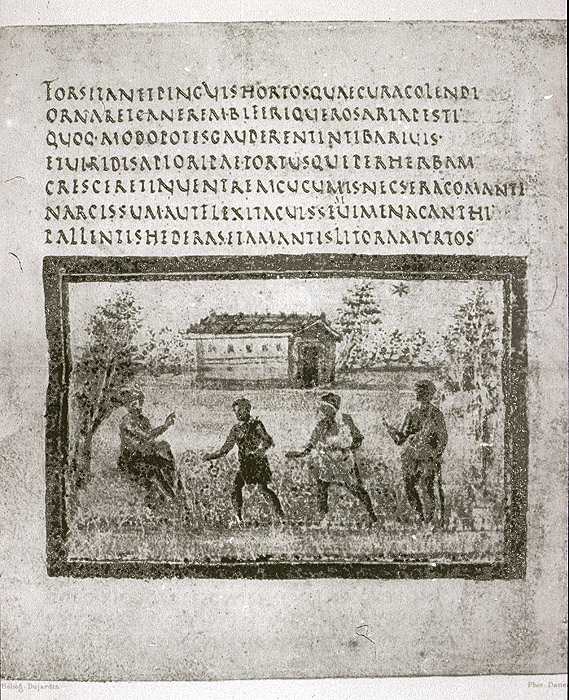 FORSITANETPINGVISHORTOSQVAECVRACOLENDI
ORNARETCANEREMBIFERIQVEROSARIAPESTI
QVOQ·MODOPOTESGAVDERENTINTIBARIVIS·
ETVIRIDISAPIORIPAETORTVSQVEPERHERBAM
CRESCERETINVENTREMCVCVMISNECSERACOMANTE
NARCISSVMAVTFLEXITACVISSEVIMENACANTHI
PALLENTISHEDERASETAMANTISLITORAMYRTOS
Héliog. Dujardin
Phot. Dane